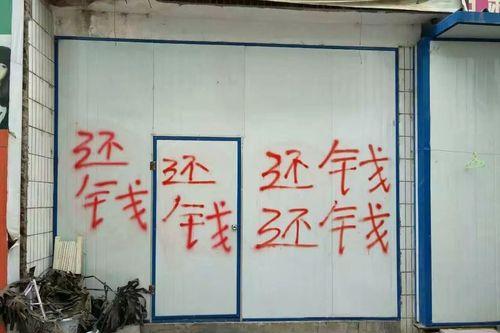 还
钱
还
钱
还钱
还钱